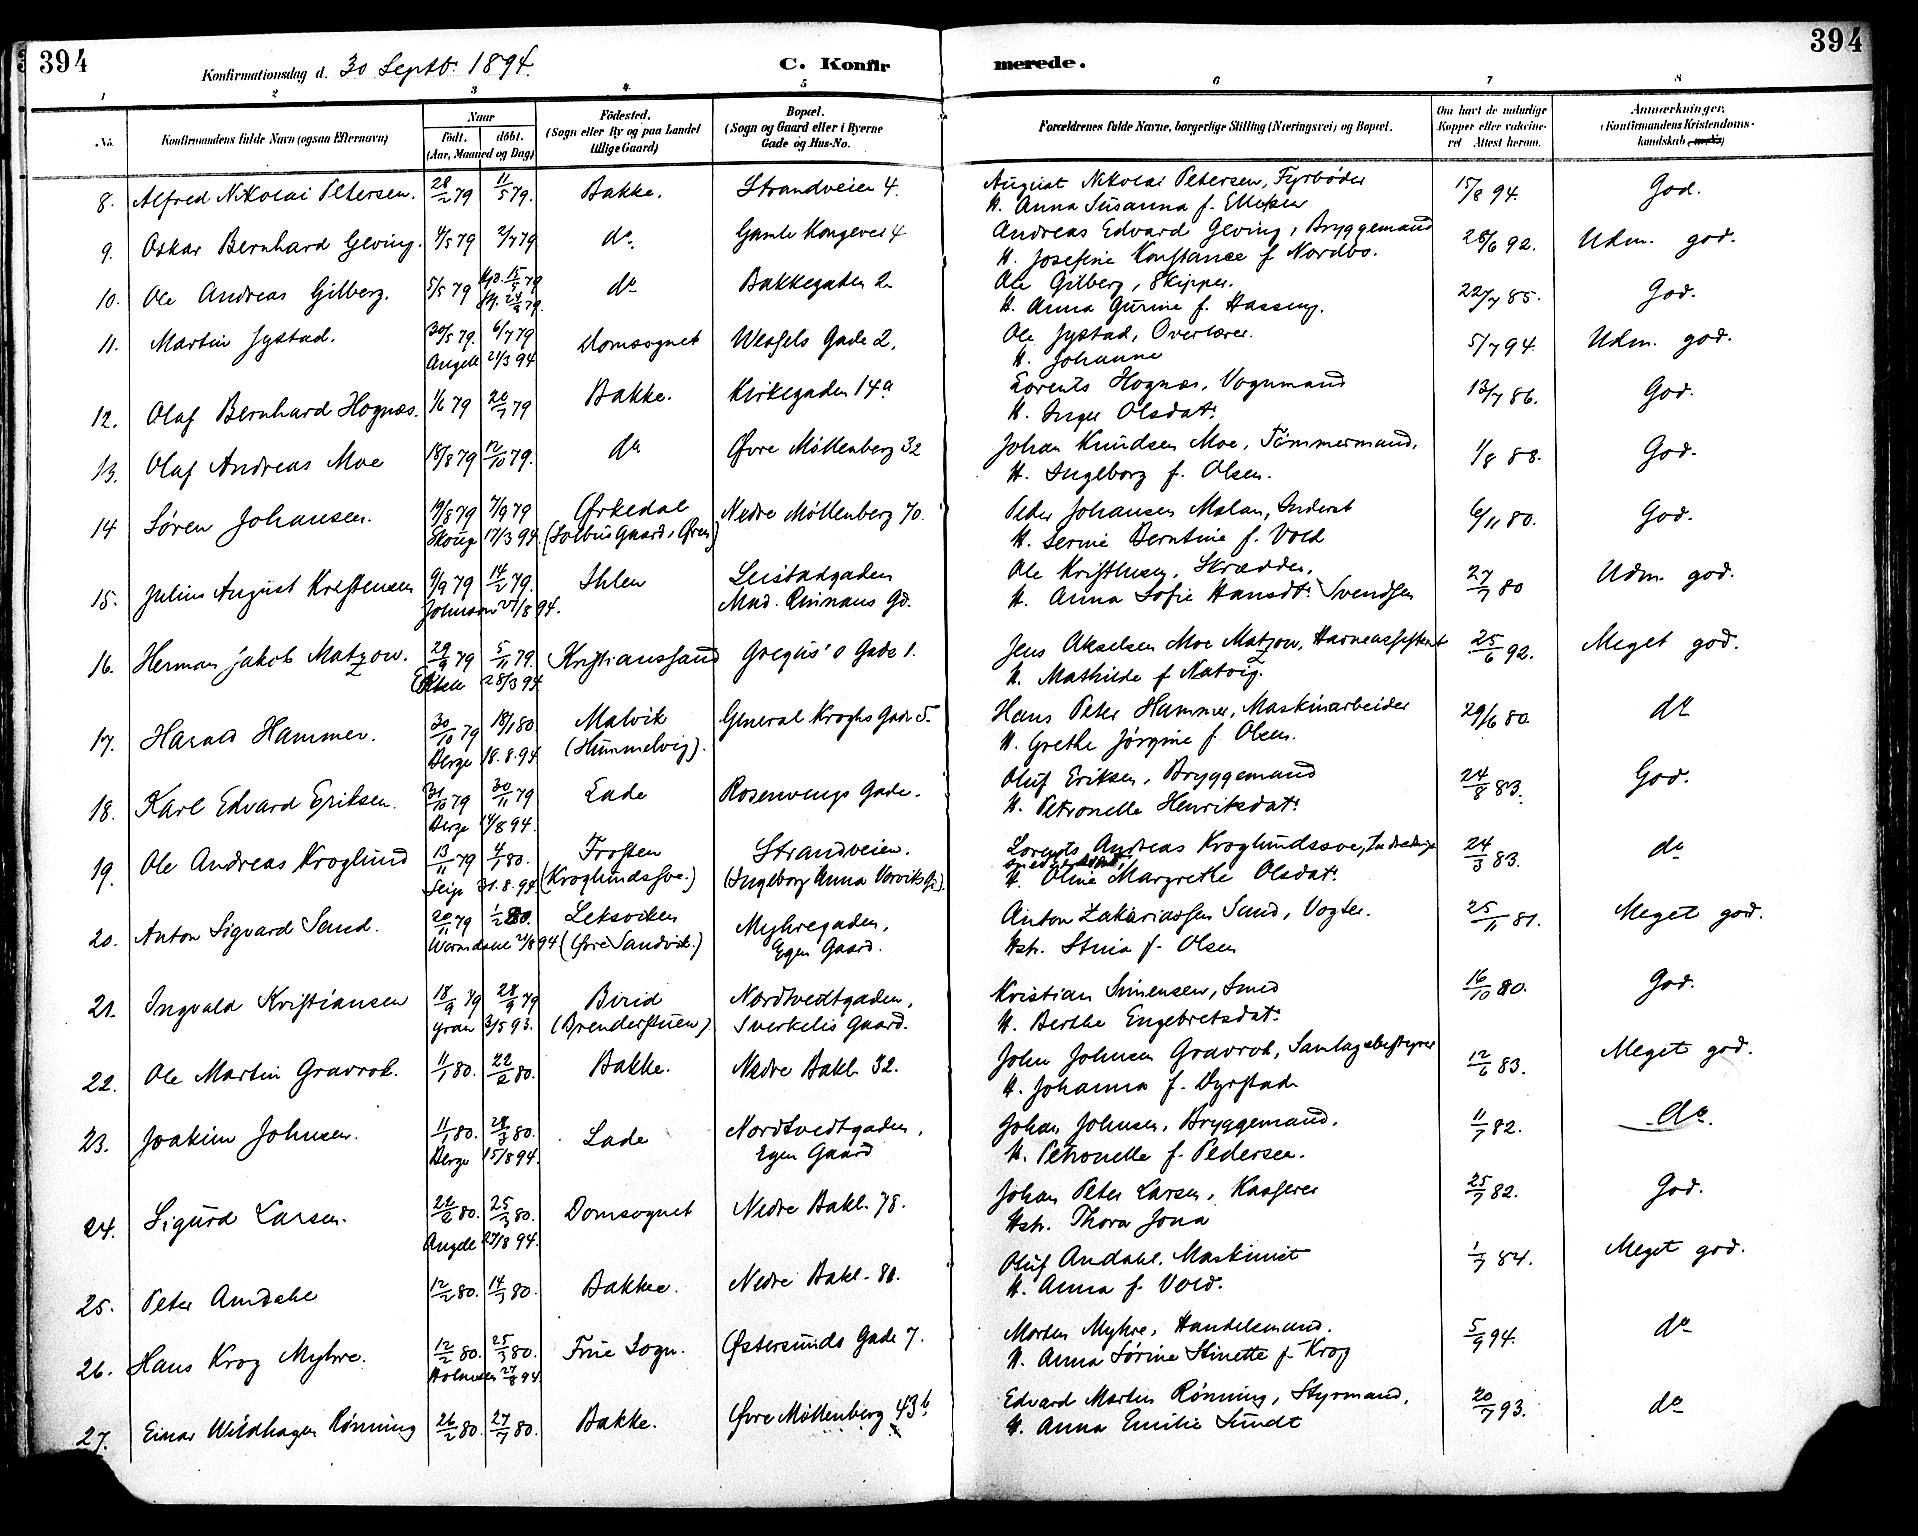 394
Konfirmationsdag d. 30 Septb. 1894.
C. Konfir
merede.
394
1 2 3 4 5 6 7 8
No. Konfirmandens fulde Navn (ogsaa Efternavn) Naar født. døbt. (Aar, Maaned og Dag) Fødested. (Sogn eller By og paa Landet tillige Gaard) Bopæl. (Sogn og Gaard eller i Byerne Gade og Hus-No. Forældrenes fulde Navne, borgerlige Stilling (Næringsvei) og Bopæl. Om havt de naturlige Kopper eller vakcineret. Attest herom. Anmærkninger. (Konfirmandens Kristendomskundskab
8. Alfred Nikolai Petersen. 28/2 79 11/5 79. Bakke. Strandveien 4. August Nikolai Petersen, Fyrbøder 15/8 94. God.
H. Anna Susanna f. Ellefsen
9. Oskar Bernhard Geving. 4/5 79 2/7 79 do. Gamle Kongevei 4 Andreas Edvard Geving, Bryggemand 28/6 92. Udm. god.
H. Josefine Konstance f Nordbo.
10. Ole Andreas Gilberg. 5/5 79 15/5 79 do Bakkegaden 2 Ole Gilberg, Skipper. 22/7 85. God.
H. Anna Gurine f. Hassing.
11. Martin Jystad. 30/5 79. 6/7 79 Domsognet Wessels Gade 2. Ole Jystad, Overlærer. 5/7 94. Udm. god.
Angell 21/3 94 H. Johanne
12. Olaf Bernhard Hognæs. 1/6 79 20/7 79 Bakke. Kirkegaden 14a Lorents Hognæs, Vognmand 13/7 86. God.
H. Inger Olsdatr.
13. Olaf Andreas Moe 18/8 79 12/10 79. do Øvre Møllenberg 32 Johan Knudsen Moe, Tømmermand. 1/8 88. God.
H. Ingeborg f. Olsen.
14 Søren Johansen. 19/8 79 7/9 79 Ørkedal Nedre Møllenberg 70. Peder Johansen Malan, Inderst 6/11 80. God.
Skouge 17/3 94. (Solbusgaard, Øren) H. Serine Berntine f. Vold
15. Julius August Kristensen 9/9 79 14/2 79. Ihlen Leistadgaden Ole Kristensen, Skrædder. 27/7 80 Udm. god.
Johnson 21/8 94. Mad. Rinnans Gd. H. Anna Sofie Hansdt. Svendsen
16. Herman Jakob Matzow. 29/9 79 5/11 79. Kristianssand Gregus' Gade 1. Jens Akselsen Moe Matzow, Havneassistent 25/6 92. Meget god.
28/3 94 H. Mathilde f Natvig.
17. Harald Hammer. 30/10 79 18/1 80 Malvik General Kroghs Gade 5. Hans Peter Hammer, Maskinarbeider 29/6 80. do
Berge 18.8.94 (Hummelvig). H. Grethe Jørgine f. Olsen.
18. Karl Edvard Eriksen. 31/10 79 30/11 79 Lade Rosenvings Gade. Oluf Eriksen, Bryggemand 24/8 83. God.
Berge 14/8 94. H. Petronelle Henriksdatr.
19. Ole Andreas Kroglund 13/11 79 4/1 80. Frosten Strandveien. Lorents Andreas Kroglundssve, 24/3 83. do
31.8.94. (Kroglundssve.) (Ingeborg Anna Vorviks Gd). H. Oline Margrethe Olsdatr.
20. Anton Sigvard Sand. 20/11 79 1/2 80. Leksviken Myhregaden, Anton Zakariassen Sand, Vogter. 25/11 81. Meget god.
Værndalen 2/8 94 (Øvre Sandvik.) Egen Gaard. Hstr. Stina f. Olsen
21. Ingvald Kristiansen 18/9 79 28/9 79 Birid Nordtvedtgaden, Kristian Simensen, Smed 16/10 80. God.
Gran 3/5 93. (Brenderstuen) Sverkelis Gaard. H. Berthe Engebretsdatr.
22. Ole Martin Gravrok. 11/1 80. 22/2 80. Bakke. Nedre Bakl. 32. John Johnsen Gravrok, Samlagsbestyrer 12/6 83. Meget god.
H. Johanna f. Dyrstad
23. Joakim Johnsen. 11/1 80. 28/3 80. Lade Nordtvedtgaden, Johan Johnsen, Bryggemand. 11/7 82. do.
Berge 15/8 94. Egen Gaard H. Petronelle f. Pedersen.
24. Sigurd Larsen. 22/2 80. 25/3 80. Domsognet Nedre Bakl. 78. Johan Peter Larsen, Kasserer 25/7 82. God.
Angell 27/8 94. Hstr. Thora Jona
25. Peter Amdahl 12/2 80. 14/3 80. Bakke. Nedre Bakl. 81. Oluf Amdahl. Maskinist 1/7 84. Meget god.
H. Anna f. Vold.
26. Hans Krog Myhre. 12/2 80. 25/3 80. Frue Sogn. Østersunds Gade 7. Morten Myhre, Handelsmand. 5/9 94. do
Holmsen 27/8 94. H. Anna Sørine Stinette f. Krog
27. Einar Wildhagen Rønning 26/2 80. 27/7 80. Bakke. Øvre Møllenberg 43b. Edvard Martin Rønning, Styrmand. 20/7 93. do
H. Anna Emilie Sundt